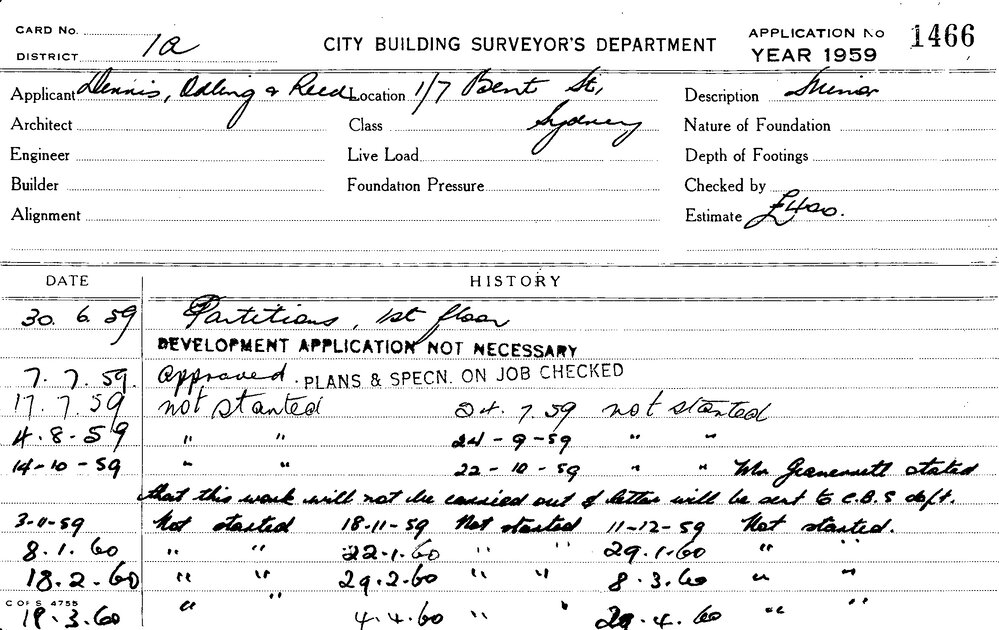 CARD No. CITY BUILDING SURVEYOR'S DEPARTMENT APPLICATION No 1466
DISTRICT 1a YEAR 1959
Applicant Dennis, Odling & Reed Location 1/7 Bent St, Description Minor
Architect Class Sydney Nature of Foundation
Engineer Live Load Depth of Footings
Builder Foundation Pressure Checked by
Alignment Estimate £400.
DATE HISTORY
30. 6. 59 Partitions, 1st floor
DEVELOPMENT APPLICATION NOT NECESSARY
7. 7. 59. approved. PLANS & SPECN. ON JOB CHECKED
17. 7. 59 not started 24. 7. 59 not started
4-8-59 " " 24-9-59 " "
14-10-59 " " 22-10-59 " " Mr stated
that this work will not be carried out & letter will be sent to C.B.S dept.
3-11-59 Not started 18-11-59 Not started 11-12-59 Not started.
8.1.60 " " 22.1.60 " " 29.1.60 " "
18.2.60 " " 29.2.60 " " 8.3.60 " "
C OF S 4755
18.3.60 " " 4.4.60 " " 29.4.60 " "